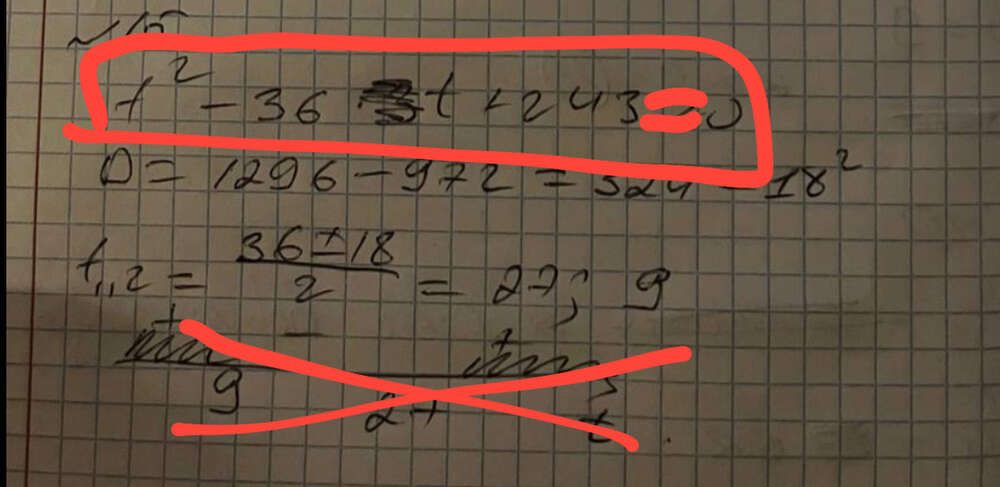 ~15
t² - 36 t + 243 = 0
D = 1296 - 972 = 324 = 18²
t₁,₂ = (36 ± 18)/2 = 27; 9
+ - +
9 27 t